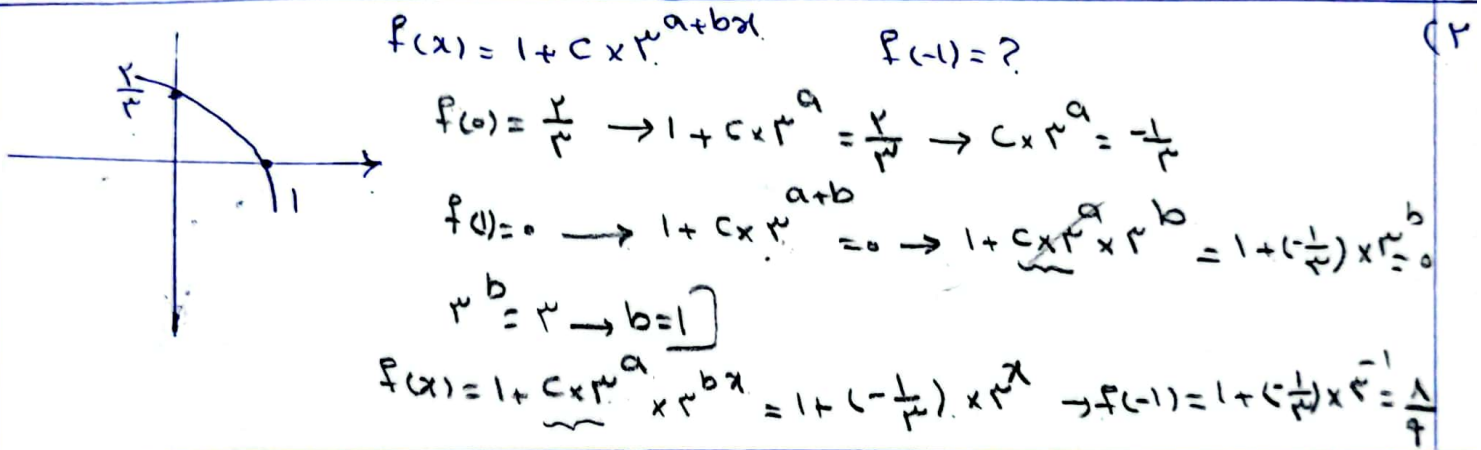 ۲)
f(x) = 1 + C × ۳^(a+bx)    f(-1) = ?
۲/۳
f(0) = ۲/۳ → 1 + C × ۳^a = ۲/۳ → C × ۳^a = -1/۳
f(1) = 0 → 1 + C × ۳^(a+b) = 0 → 1 + C × ۳^a × ۳^b = 1 + (-1/۳) × ۳^b = 0
1
۳^b = ۳ → b = 1
f(x) = 1 + C × ۳^a × ۳^(bx) = 1 + (-1/۳) × ۳^x → f(-1) = 1 + (-1/۳) × ۳^-1 = ۸/۹